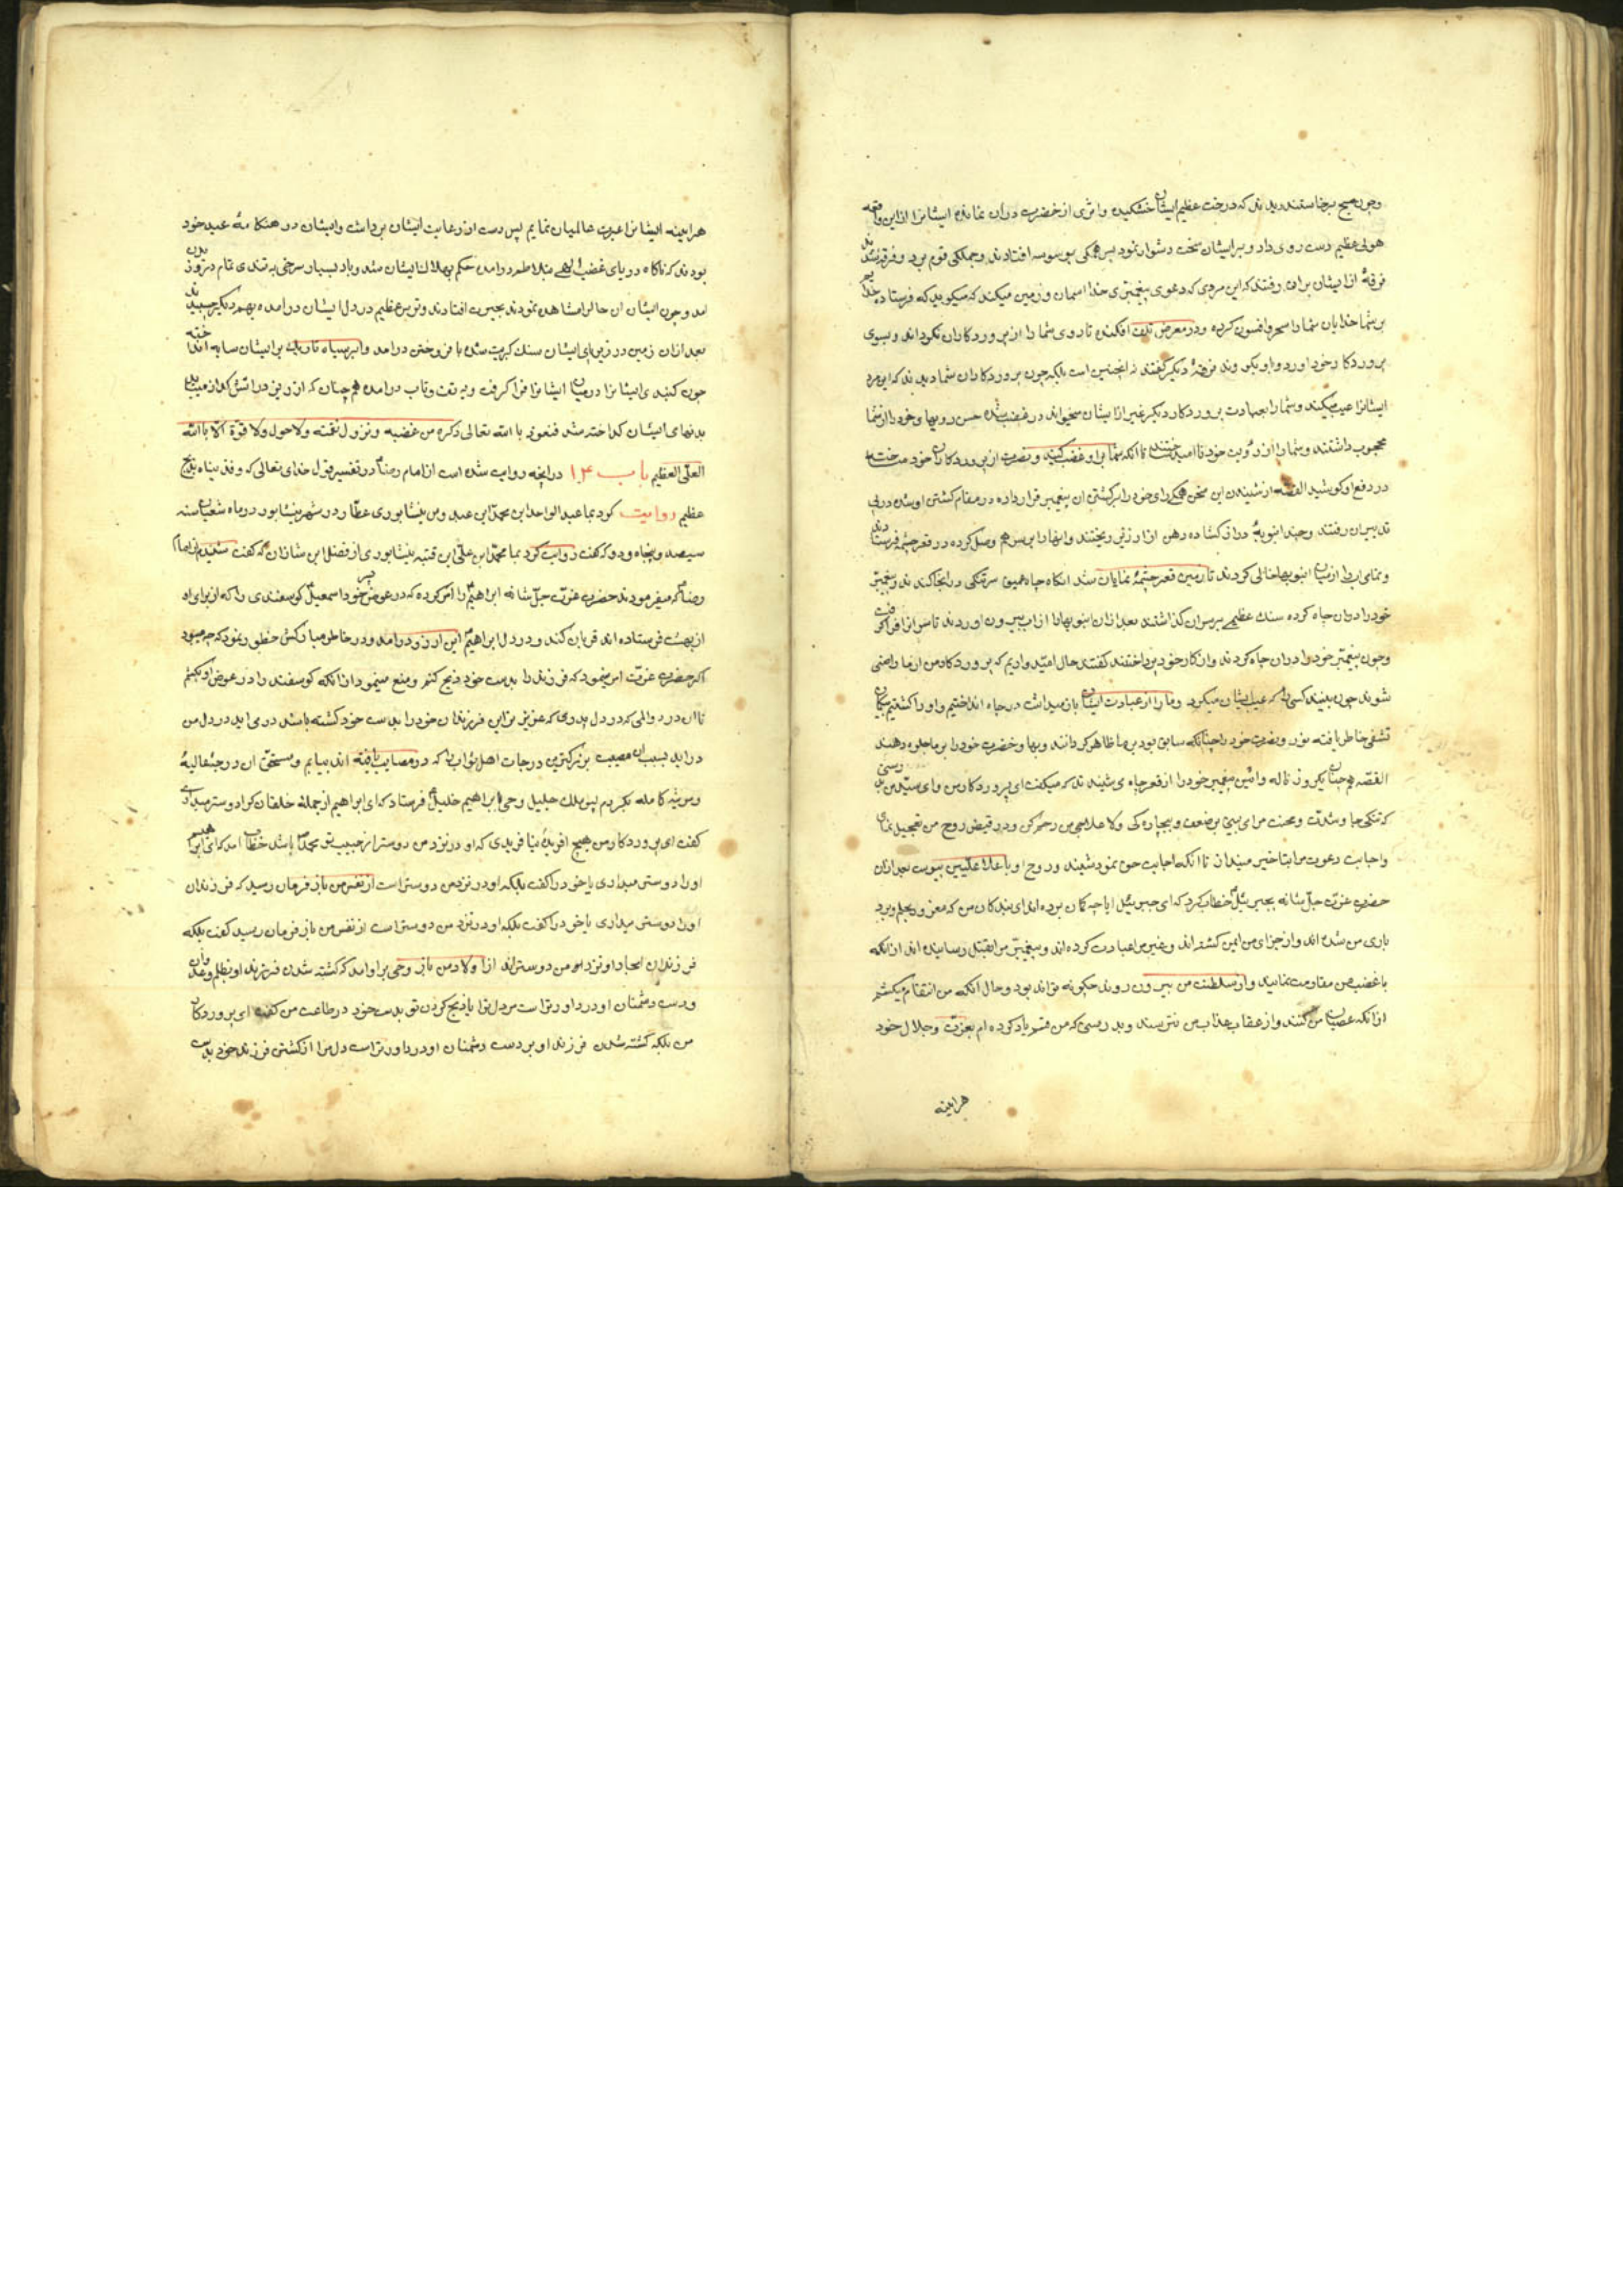 وچون صبح برخاستند دیدند که درخت عظیم ایشان خشکیده و اثری از خضرت در ان نمانده ایشانرا ازاین واقعه
هولی عظیم دست روی داد و برایشان سخت دشوار نمود پس همکی بوسوسه افتادند وجملکی قوم بر دو فرقه شدند
فرقهٔ از ایشان بران رفتند که این مردی که دعوی پیغمبری خدا اسمان و زمین میکند که میکوید که فرستاده خدایم
برشما خدایان شما را سحر وافسون کرده ودر معرض تلف افکنده تا روی شما را از پروردکاران بکرداند وبسوی
پروردکار خود اورد واو یکی وند فرقهٔ دیکر کفتند نه اینچنین است بلکه چون پروردکاران شما دیدند که این مرد
ایشانرا عیب میکند وشما را بعبادت پروردکار دیکر غیر از ایشان میخواند در غضب شده حسن وبها وخود را از شما
محجوب داشتند وشما را از رؤیت خود نا امید ساختند تا انکه شما بر او غضب کنید و نصرت از پروردکاران خود
در دفع او کوشید القصه از شنیدن این سخن همکی رای خود را بر کشتن ان پیغمبر قرار داده در مقام کشتن او شده در پی
تدبیر ان رفتند وچند انبوبهٔ دراز کشاده دهن از ارزیز ریختند وانها را بر سر هم وصل کرده در قعر چشمه فرستادند
وتمام اب را از میان انبوبها خالی کردند تا زمین قعر چشمهٔ نمایان شد انکاه چاه عمیق سرتنکی در انجا کندند وپیغمبر
خود را در ان چاه کرده سنک عظیمی بر سر ان کذاشتند بعد ازان انبوبها را از اب بیرون اوردند تا سر انرا فرا کرفت
وچون پیغمبر خود را در ان چاه کردند واز کار خود پرداختند کفتند حال امید داریم که پروردکار من از ما راضی
شوند چون ببینند کسی را که عیب ایشان میکرد وما را از عبادت ایشان باز میداشت در چاه انداختیم و او را کشتیم
تشفی خاطر یافته نور ونضرت خود را چنانکه سابق بود بر ما ظاهر کردانند وبها وخضرت خود را بر ما جلوه دهند
القصه همچنان یکروز ناله وانین پیغمبر خود را از قعر چاه می شنیدند که میکفت ای پروردکار من وای سید من
که تنکی جا وشدت ومحنت مرا می بینی بر ضعف وبیچاره کی ولا علاجی من رحم کن ودر قبض روح من تعجیل نمای
واجابت دعوت مرا بتاخیر مینداز تا انکه اجابت حق نمود شنیدند و روح او باعلا علیین پیوست بعد ازان
حضرت عزت جل شانه بجبرئیل خطاب کرد که ای جبرئیل ایا چه کمان برده اند ای بندکان من که مغرور بحلم و برد
باری من شده اند واز جزای من ایمن کشته اند و غیر مرا عبادت کرده اند وپیغمبر مرا بقتل رسانیده اند از انکه
با غضب من مقاومت نمایند واز سلطنت من بیرون روند چکونه تواند بود وحال انکه من انتقام میکشم
از انکه عصیان من کنند واز عقاب وعذاب من نترسند وبدرستی که من قسم یاد کرده ام بعزت وجلال خود
هراینه
هراینه ایشانرا عبرت عالمیان نمایم پس دست از رعایت ایشان برداشت وایشان در هنکامهٔ عید خود
بودند که ناکاه دریای غضب الهی بتلاطم درامده حکم بهلاک ایشان شد وباد بسیار سرخی به تندی تمام در وزیدن
امد وچون ایشان ان حال را مشاهده نمودند بحیرت افتادند وترس عظیم در دل ایشان درامده بهم دیکر چسبیدند
بعد ازان زمین در زیر پای ایشان سنک کبریت شده بافروختن درامد وابر سیاه تاریک بر ایشان سایه انداخته
چون کنبدی ایشانرا در میان ایشانرا فرا کرفت وبه تفت وتاب درامده همچنان که ارزیز در اتش کدازد
بدنهای ایشان کداخته شد فنعوذ بالله تعالی ذکره من غضبه ونزول نقمته ولا حول ولا قوة الا بالله
العلی العظیم باب ۱۴ در انچه روایت شده است از امام رضا در تفسیر قول خدای تعالی که وفدیناه بذبح
عظیم روایت کرد بما عبد الواحد ابن محمد ابن عبدوس نیشابوری عطار در شهر نیشابور در ماه شعبان سنه
سیصد وپنجاه ودو که کفت روایت کرد بما محمد ابن علی ابن قتیبه نیشابوری از فضل ابن شاذان که کفت شنیدم از امام
رضا که میفرمودند حضرت عزت جل شانه ابراهیم را امر کرده که در عوض پسر خود اسمعیل کوسفندی را که از برای او
از بهشت فرستاده اند قربان کند و در دل ابراهیم این ارزو درامد ودر خاطر مبارکش خطور نمود که چه میبود
اکر حضرت عزت امر میفرمود که فرزند را بدست خود ذبح کنم ومنع مینمود از انکه کوسفند را در عوض او بکشم
تا ان درد والمی که در دل پدری که عزیز ترین فرزندان خود را بدست خود کشته باشد در می اید در دل من
دراید بسبب ان مصیبت بزرکترین درجات اهل ثواب را که در مصایب یافته اند بیابم و مستحق ان درجهٔ عالیه
ومرتبهٔ کامله بکردم پس ملک جلیل وحی بابراهیم خلیل فرستاد که ای ابراهیم از جملهٔ خلقان کرا دوستر میداری
کفت ای پروردکار من هیچ افریدهٔ نیافریدی که او در نزد من دوستر از حبیب تو محمد باشد خطاب امد که ای ابراهیم
او را دوستر میداری یا خود را کفت بلکه او در نزد من دوستر است از نفس من باز فرمان رسید که فرزندان
او را دوستر میداری یا خود را کفت بلکه او در نزد من دوستر است از نفس من باز فرمان رسید کفت بلکه
فرزندان امجاد او نزد من دوستراند از اولاد من باز وحی بر او امد که کشته شدن فرزند او بظلم وعدوان
ودست دشمنان او درد اورتر است مر دل ترا یا ذبح کردن تو بدست خود در طاعت من کفت ای پروردکار
من بلکه کشته شدن فرزند او بر دست دشمنان او درد اورتر است دل مرا از کشتن فرزند خود بدست